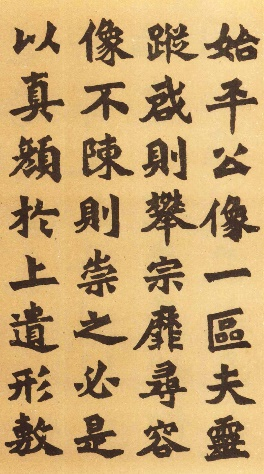 始平公像一區夫靈
蹤啟則攀宗靡尋容
像不陳則崇之必是
以真顏於上遺形敷